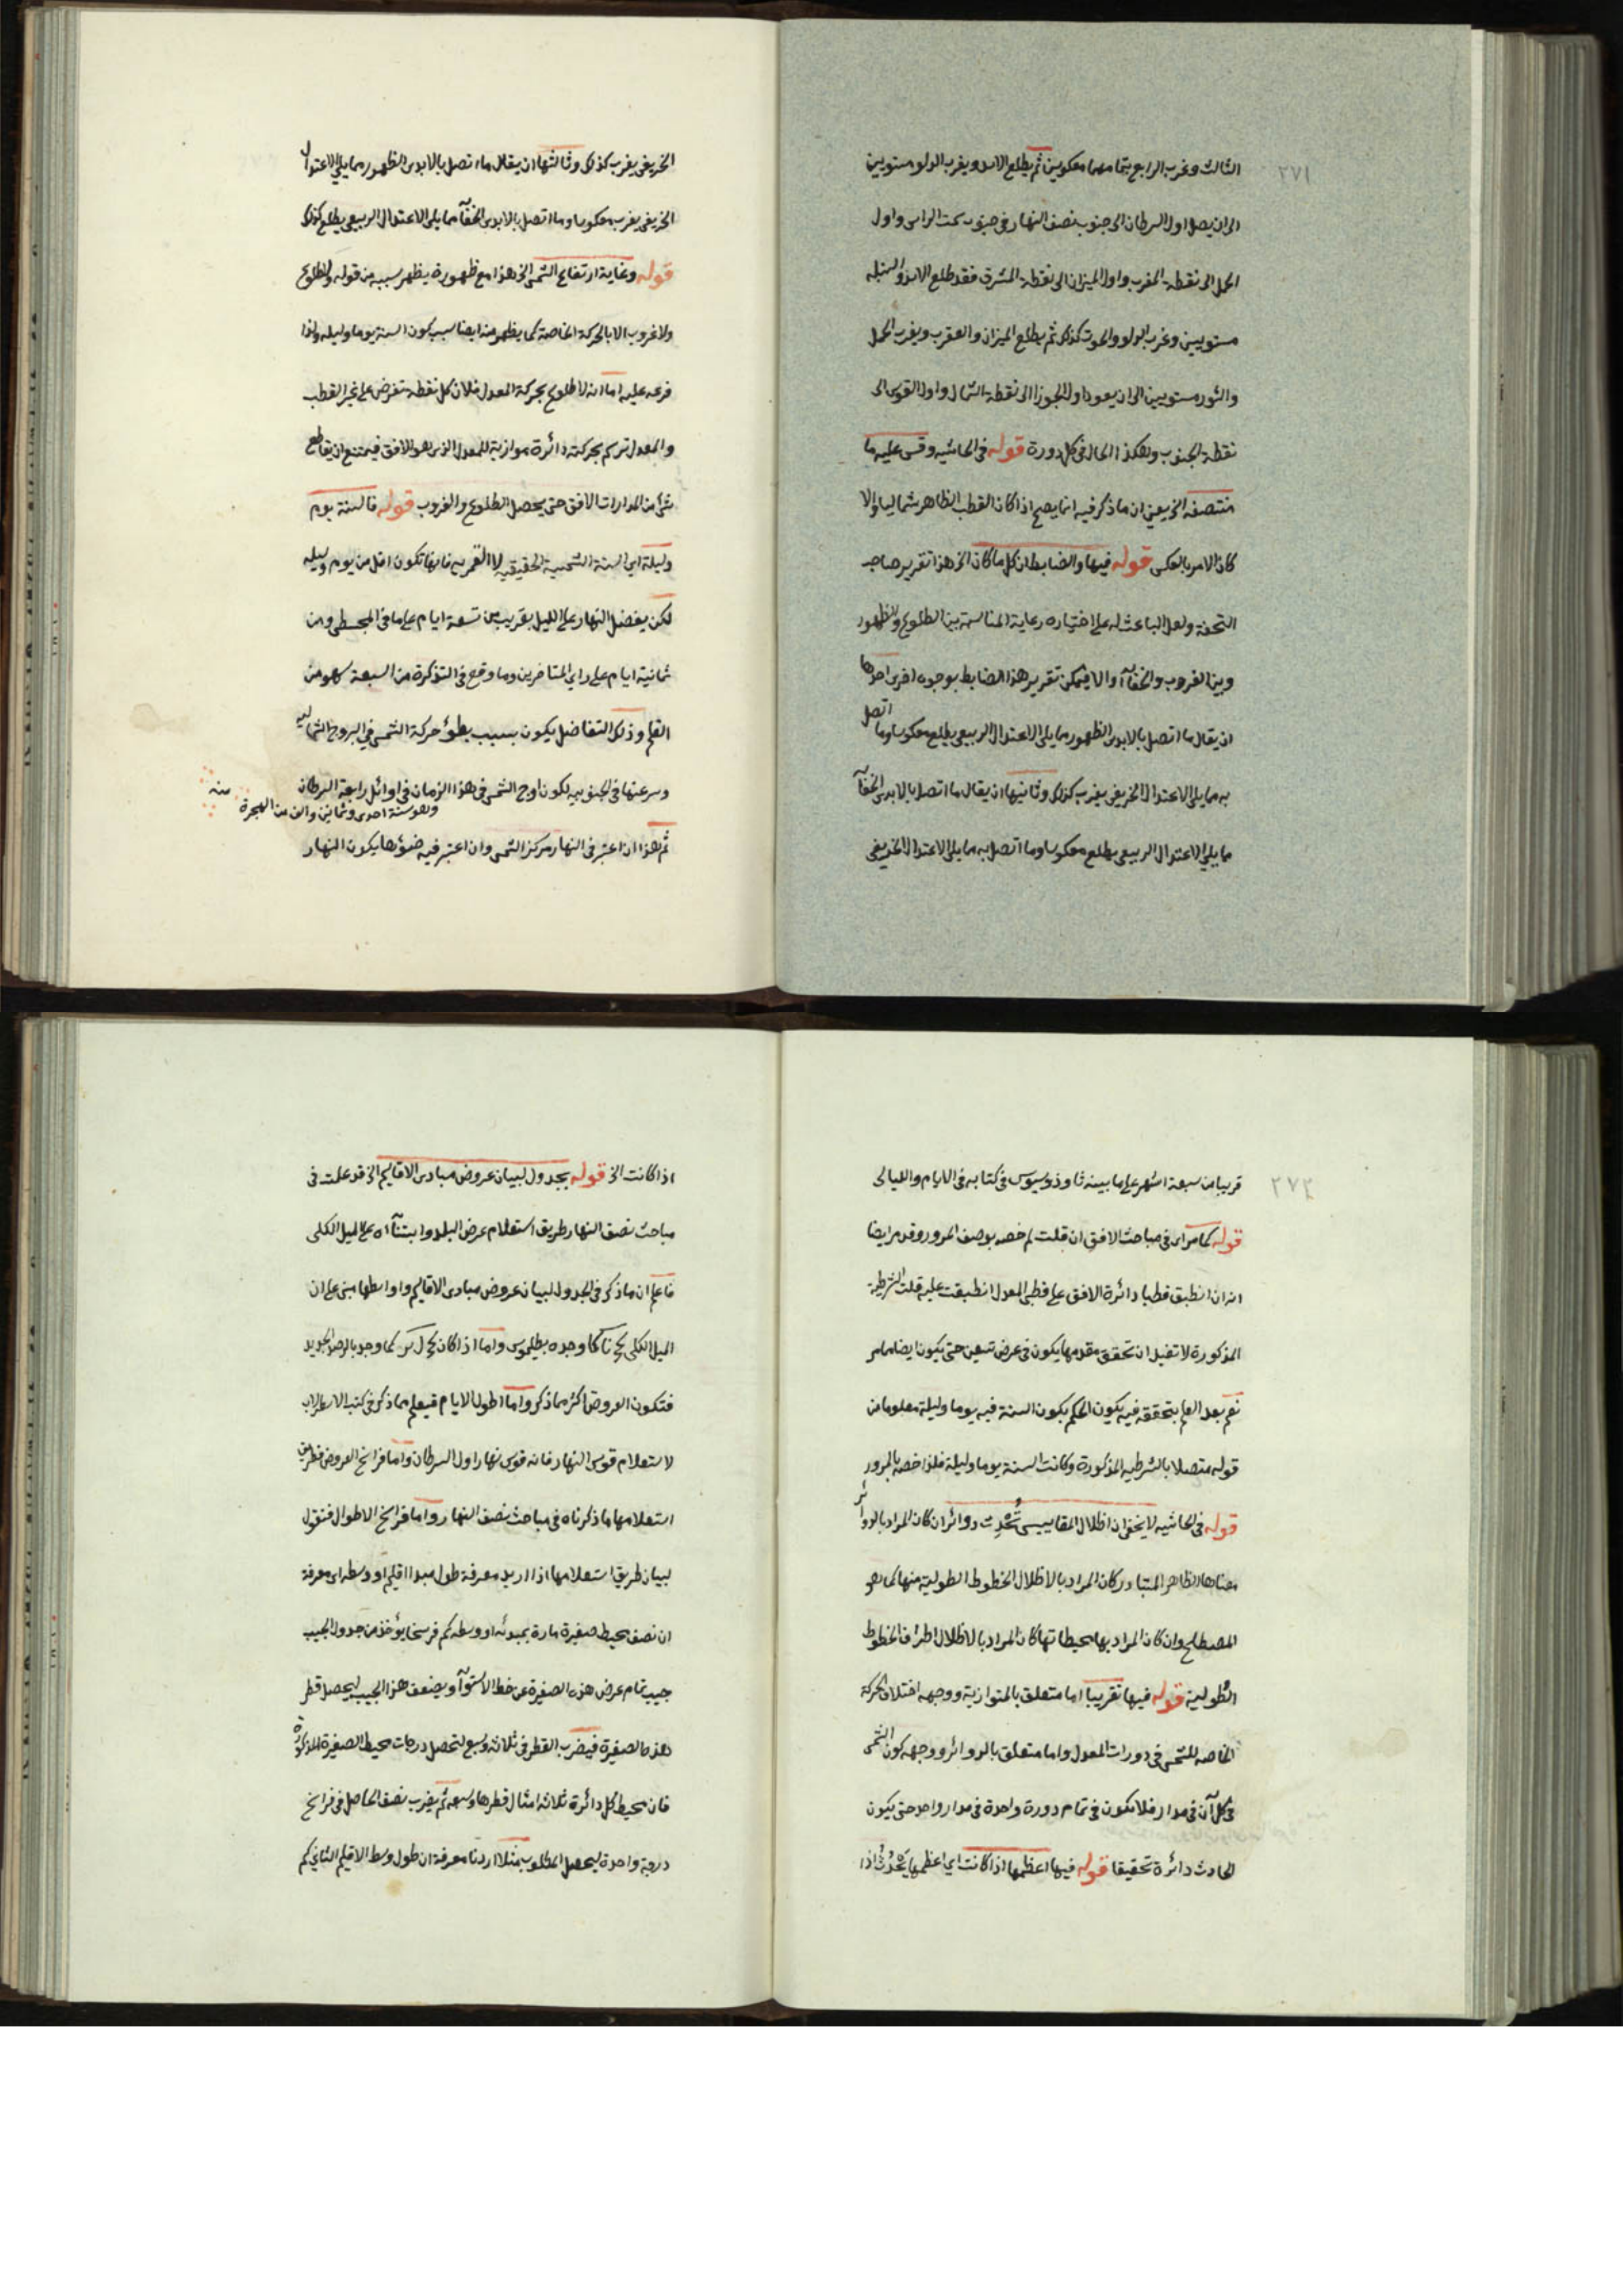 ٢٧١
الثالث وغرب الرابع بتمامهما معكوسين ثم يطلع الاسد ويغرب الدلو مستويين
الى ان يصل اول السرطان الى جنوب نصف النهار في جنوب سمت الراس واول
الحمل الى نقطة المغرب واول الميزان الى نقطة المشرق فقد طلع الاسد والسنبلة
مستويين وغرب الدلو والحوت كذلك ثم يطلع الميزان والعقرب ويغرب الحمل
والثور مستويين الى ان يعود اول الجوزا الى نقطة الشمال واول القوس الى
نقطة الجنوب وهكذا الحال في كل دورة قوله في الحاشيه وقس عليه ما
منتصفه الخ يعني ان ما ذكر فيه انما يصح اذا كان القطب الظاهر شماليا والا
كان الامر بالعكس قوله فيها والضابط ان كل ما كان الخ هذا تقرير صاحب
التحفة ولعل الباعث له على اختياره رعاية المناسبة بين الطلوع والظهور
وبين الغروب والخفآء والا فيمكن تقرير هذا الضابط بوجوه اخرى احدها
ان يقال ما اتصل بالابدى الظهور مما يلى الاعتدال الربيعى يطلع معكوسا وما اتصل
به مما يلى الاعتدال الخريفى يغرب كذلك وثانيها ان يقال ما اتصل بالابدى الخفآء
مما يلى الاعتدال الربيعى يطلع معكوسا وما اتصل به مما يلى الاعتدال الخريفى
الخريفى يغرب كذلك وثالثها ان يقال ما اتصل بالابدى الظهور مما يلى الاعتدال
الخريفى يغرب معكوسا وما اتصل بالابدى الخفآء مما يلى الاعتدال الربيعى يطلع كذلك
قوله وغاية ارتفاع الشمس الخ هذا مع ظهوره يظهر سببه من قوله ولا طلوع
ولا غروب الا بالحركة الخاصة كما يظهر منه ايضا سبب كون السنة يوما وليله ولذا
فرعه عليه اما انه لا طلوع بحركة المعدل فلان كل نقطة تفرض على غير القطب
والمعدل ترسم بحركته دائرة موازية للمعدل الذى هو الافق فيمتنع ان يقاطع
شئ من المدارات الافق حتى يحصل الطلوع والغروب قوله فالسنة يوم
وليلة اى السنة الشمسية الحقيقيه لا القمريه فانها تكون اقل من يوم وليله
لكن يفضل النهار على الليل بقريب من تسعة ايام على ما فى المجسطى ومن
ثمانية ايام على راى المتاخرين وما وقع فى التذكرة من السبعة سهو من
القلم وذلك التفاضل يكون بسبب بطؤ حركة الشمس فى البروج الشماليه
وسرعتها فى الجنوبيه لكون اوج الشمس فى هذا الزمان فى اوائل رابعة السرطان
وهو سنة احدى وثمانين والف من الهجرة منه
ثم هذا اذا اعتبر فى النهار مركز الشمس وان اعتبر فيه ضوئها يكون النهار
٢٧٢
قريبا من سبعة اشهر على ما بينه ثاوذوسيوس فى كتابه فى الايام والليالى
قوله كما مر اى فى مباحث الافق ان قلت لم خصه بوصف المرور وقد مر ايضا
انه ان انطبق قطبا دائرة الافق على قطبى المعدل انطبقت عليه قلت الشرطية
المذكورة لا تفيد ان تحقق مقدمها يكون فى عرض تسعين حتى يكون ايضا مما مر
نعم بعد العلم بتحققه فيه يكون الحكم بكون السنة فيه يوما وليلة معلوما من
قوله متصلا بالشرطيه المذكورة وكانت السنة يوما وليلة فلذا خصه بالمرور
قوله فى الحاشيه لا يخفى ان اظلال المقاييس تُحْدِث دوائر ان كان المراد بالدوائر
معناها الظاهر المتبادر كان المراد بالاظلال الخطوط الطولية منها كما هو
المصطلح وان كان المراد بها محيطاتها كان المراد بالاظلال اطراف الخطوط
الطولية قوله فيها تقريبا اما متعلق بالمتوازية ووجهه اختلاف الحركة
الخاصه للشمس فى دورات المعدل واما متعلق بالدوائر ووجهه كون الشمس
فى كل آن فى مدار فلا تكون فى تمام دورة واحدة فى مدار واحد حتى يكون
الحادث دائرة تحقيقا قوله فيها اعظمها اذا كانت اى اعظمها يَحْدُث اذا
اذا كانت الخ قوله بجدول لبيان عروض مبادى الاقاليم الخ قد علمت فى
مباحث نصف النهار طريق استعلام عرض البلد وابتنآءه على الميل الكلى
فاعلم ان ما ذكر فى الجدول لبيان عروض مبادى الاقاليم واواسطها مبنى على ان
الميل الكلى كج نا كما وجده بطلميوس واما اذا كان كج ل كما وجد بالرصد الجديد
فتكون العروض اكثر مما ذكر واما اطول الايام فيعلم مما ذكر فى كتب الاسطرلاب
لاستعلام قوس النهار فانه قوس نهار اول السرطان واما فراسخ العروض فطريق
استعلامها ما ذكرناه فى مباحث نصف النهار واما فراسخ الاطوال فنقول
لبيان طريق استعلامها اذا اريد معرفة طول مبدا اقليم او وسطه اى معرفة
ان نصف محيط صغيرة مارة بمبدئه او وسطه كم فرسخا يؤخذ من جدول الجيب
جيب تمام عرض هذه الصغيرة عن خط الاستوآء ويضعف هذا الجيب ليحصل قطر
هذه الصغيرة فيضرب القطر فى ثلاثه وسبع لتحصل درجات محيط الصغيرة المذكورة
فان محيط كل دائرة ثلاثه امثال قطرها وسبعه ثم يضرب نصف الحاصل فى فراسخ
درجة واحدة ليحصل المطلوب مثلا اردنا معرفة ان طول وسط الاقليم الثانى كم